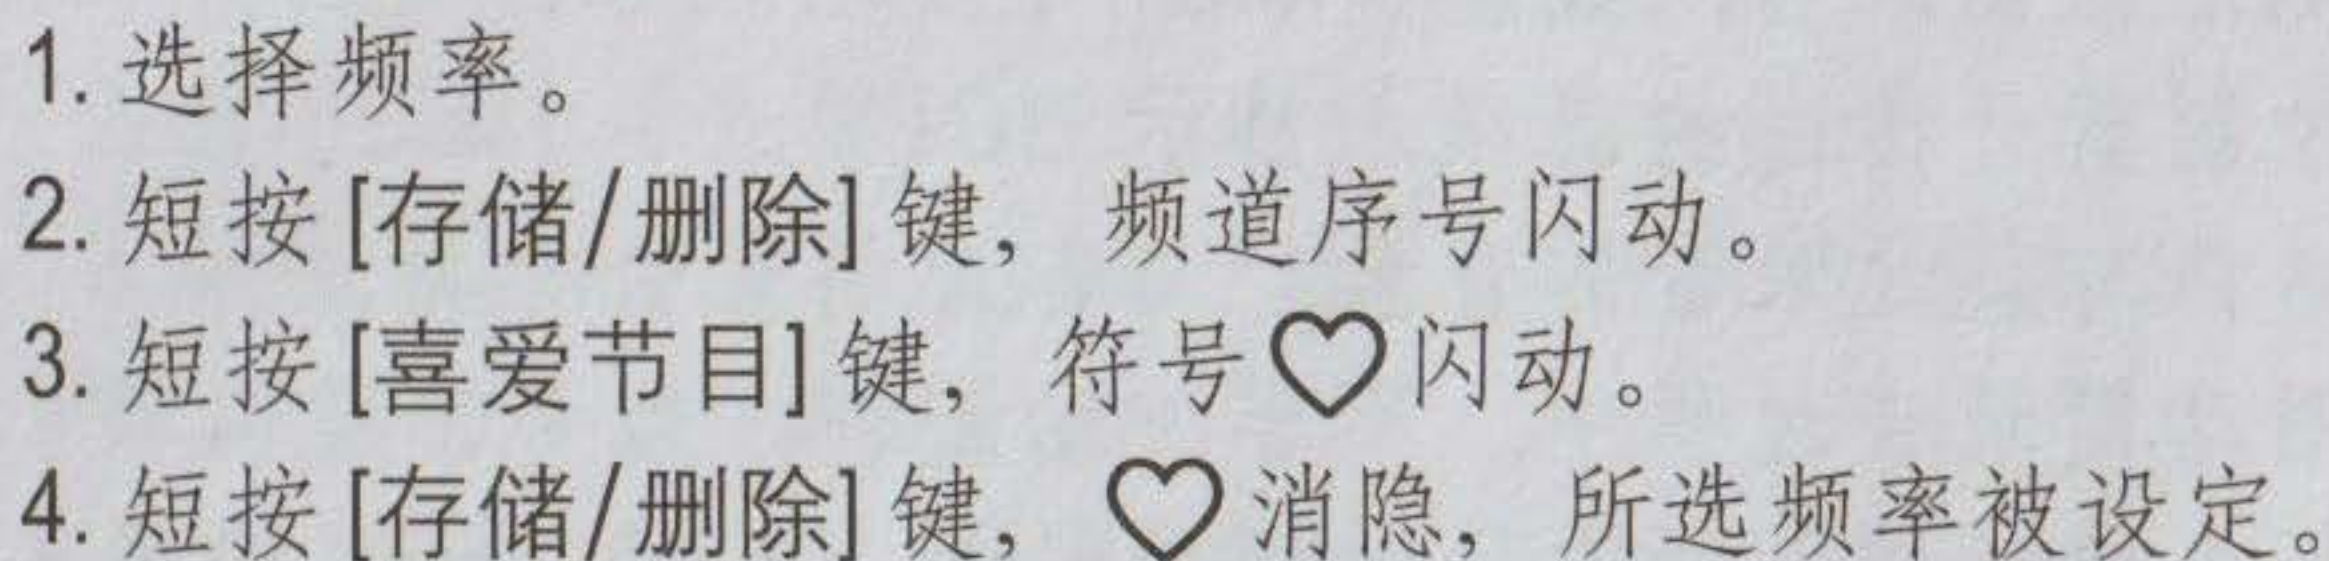 1. 选择频率。
2. 短按 [存储/删除] 键，频道序号闪动。
3. 短按 [喜爱节目] 键，符号♡闪动。
4. 短按 [存储/删除] 键，♡消隐，所选频率被设定。